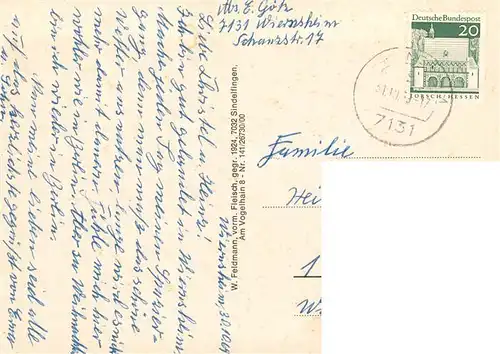 Abs. E. Götz
7131 Wiernsheim
Schanzstr. 17
Deutsche Bundespost
20
LORSCH/HESSEN
7131
Familie
Hei
1
W. Feldmann, vorm. Fleisch, gegr. 1924, 7032 Sindelfingen,
Am Vogelhain 8 - Nr. 141/26730/00
Wiernsheim,
Liebe Christel u. Heinz!
Ich bin gut gelandet in Wiernsheim.
Mache jeden Tag meinen Spazier-
gang, denn man muß das schöne
Wetter ausnutzen, lange wird es nicht
mehr damit dauern. Fühle mich hier
wohler wie in Berlin. Aber zu Weihnachten
bin ich wieder in Berlin.
Nun meine Lieben seid alle
auf das herzlichste gegrüßt von Eurer